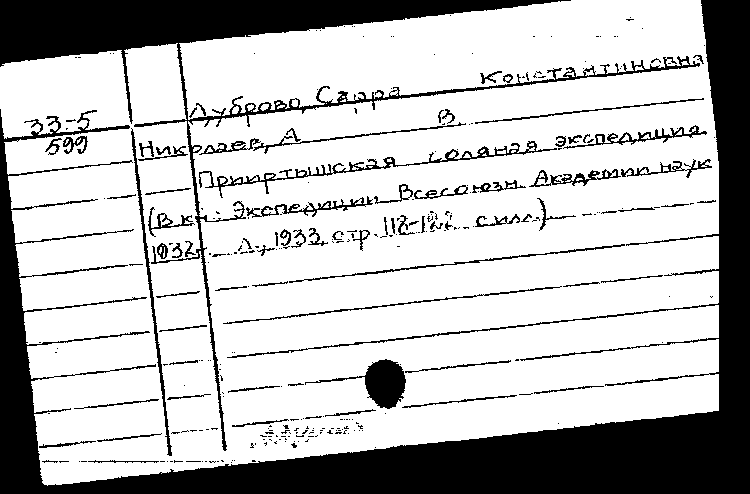 33-5
599
Дуброво, Сарра Константиновна
Николаев, А. В.
Прииртышская соляная экспедиция.
(В кн: Экспедиции Всесоюзн. Академии наук
1932г. Л., 1933, стр. 118-122 с илл.)